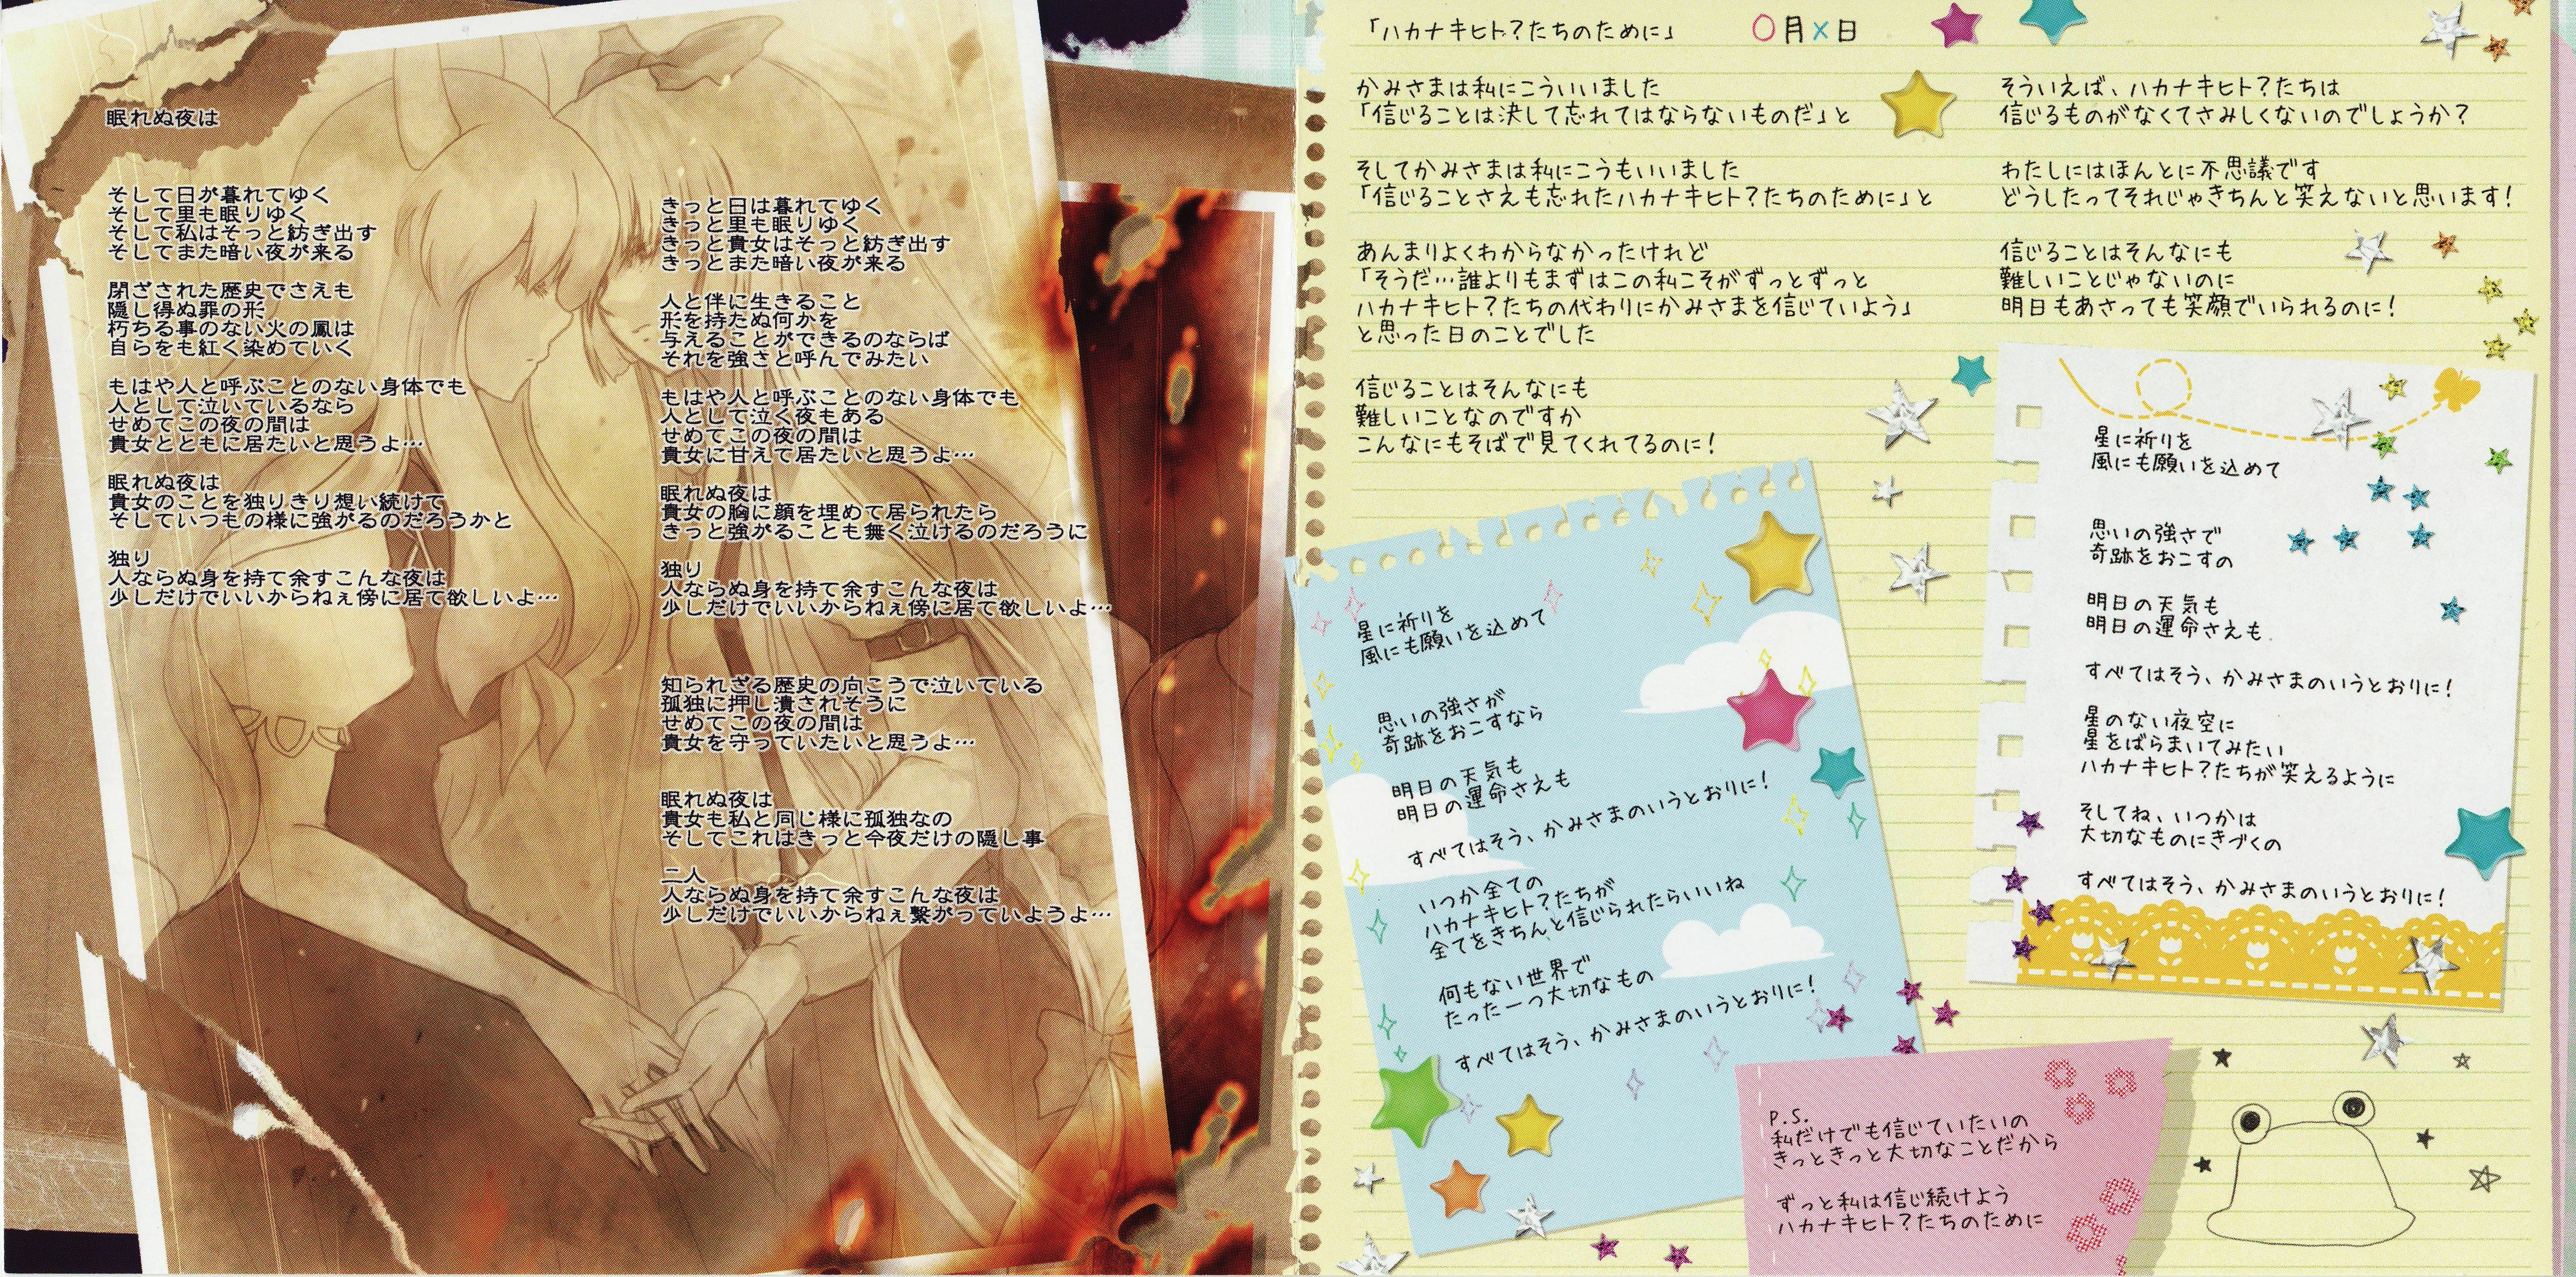 眠れぬ夜は
そして日が暮れてゆく
そして里も眠りゆく
そして私はそっと紡ぎ出す
そしてまた暗い夜が来る
閉ざされた歴史でさえも
隠し得ぬ罪の形
朽ちる事のない火の鳳は
自らをも紅く染めていく
もはや人と呼ぶことのない身体でも
人として泣いているなら
せめてこの夜の間は
貴女とともに居たいと思うよ…
眠れぬ夜は
貴女のことを独りきり想い続けて
そしていつもの様に強がるのだろうかと
独り
人ならぬ身を持て余すこんな夜は
少しだけでいいからねぇ傍に居て欲しいよ…
きっと日は暮れてゆく
きっと里も眠りゆく
きっと貴女はそっと紡ぎ出す
きっとまた暗い夜が来る
人と伴に生きること
形を持たぬ何かを
与えることができるのならば
それを強さと呼んでみたい
もはや人と呼ぶことのない身体でも
人として泣く夜もある
せめてこの夜の間は
貴女に甘えて居たいと思うよ…
眠れぬ夜は
貴女の胸に顔を埋めて居られたら
きっと強がることも無く泣けるのだろうに
独り
人ならぬ身を持て余すこんな夜は
少しだけでいいからねぇ傍に居て欲しいよ…
知られざる歴史の向こうで泣いている
孤独に押し潰されそうに
せめてこの夜の間は
貴女を守っていたいと思うよ…
眠れぬ夜は
貴女も私と同じ様に孤独なの
そしてこれはきっと今夜だけの隠し事
二人
人ならぬ身を持て余すこんな夜は
少しだけでいいからねぇ繋がっていようよ…
「ハカナキヒト?たちのために」 〇月×日
かみさまは私にこういいました
「信じることは決して忘れてはならないものだ」と
そしてかみさまは私にこうもいいました
「信じることさえも忘れたハカナキヒト?たちのために」と
あんまりよくわからなかったけれど
「そうだ…誰よりもまずはこの私こそがずっとずっと
ハカナキヒト?たちの代わりにかみさまを信じていよう」
と思った日のことでした
信じることはそんなにも
難しいことなのですか
こんなにもそばで見てくれてるのに!
星に祈りを
風にも願いを込めて
思いの強さが
奇跡をおこすなら
明日の天気も
明日の運命さえも
すべてはそう、かみさまのいうとおりに!
いつか全ての
ハカナキヒト?たちが
全てをきちんと信じられたらいいね
何もない世界で
たった一つ大切なもの
すべてはそう、かみさまのいうとおりに!
そういえば、ハカナキヒト?たちは
信じるものがなくてさみしくないのでしょうか?
わたしにはほんとに不思議です
どうしたってそれじゃきちんと笑えないと思います!
信じることはそんなにも
難しいことじゃないのに
明日もあさっても笑顔でいられるのに!
星に祈りを
風にも願いを込めて
思いの強さで
奇跡をおこすの
明日の天気も
明日の運命さえも
すべてはそう、かみさまのいうとおりに!
星のない夜空に
星をばらまいてみたい
ハカナキヒト?たちが笑えるように
そしてね、いつかは
大切なものにきづくの
すべてはそう、かみさまのいうとおりに!
P.S.
私だけでも信じていたいの
きっときっと大切なことだから
ずっと私は信じ続けよう
ハカナキヒト?たちのために